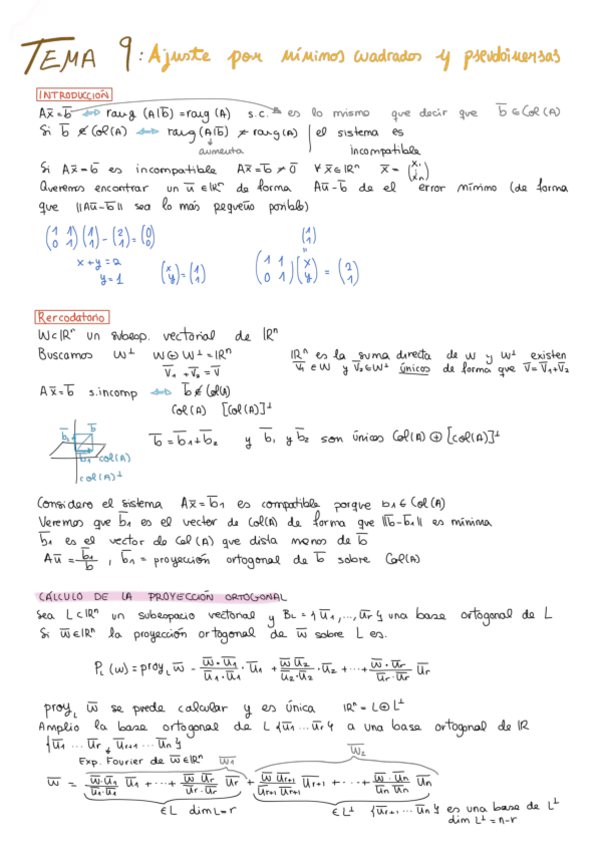 TEMA 9: Ajuste por mínimos cuadrados y pseudoinversas
INTRODUCCIÓN
Ax̅ = b̅ ⟺ rang (A|b̅) = rang (A) s.c. → es lo mismo que decir que b̅ ∈ Col(A)
Si b̅ ∉ Col(A) ⟺ rang (A|b̅) ≠ rang(A) | el sistema es
aumenta incompatible
Si Ax̅ = b̅ es incompatible Ax̅ = b̅ ≠ 0̅ ∀ x̅ ∈ ℝⁿ x̅ = (x₁ ⋮ xₙ)
Queremos encontrar un u̅ ∈ ℝⁿ de forma Au̅ - b̅ de el error mínimo (de forma
que ||Au̅ - b̅|| sea lo más pequeño posible)
(1 1 / 0 1)(1 / 1) - (2 / 1) = (0 / 0)
(1 / 1)
=
x + y = 2
y = 1
(x / y) = (1 / 1)
(1 1 / 0 1)(x / y) = (2 / 1)
Rercodatorio
W ⊂ ℝⁿ un subesp. vectorial de ℝⁿ
Buscamos W⊥ W ⊕ W⊥ = ℝⁿ ℝⁿ es la suma directa de W y W⊥ existen
V̅₁ + V̅₂ = V̅ V̅₁ ∈ W y V̅₂ ∈ W⊥ únicos de forma que V̅ = V̅₁ + V̅₂
Ax̅ = b̅ s.incomp ⟺ b̅ ∉ Col(A)
Col(A) [Col(A)]⊥
b̅₂ b̅
b̅₁ col(A)
col(A)⊥
b̅ = b̅₁ + b̅₂ y b̅₁ y b̅₂ son únicos Col(A) ⊕ [col(A)]⊥
Considero el sistema Ax̅ = b̅₁ es compatible porque b₁ ∈ Col(A)
Veremos que b̅₁ es el vector de Col(A) de forma que ||b̅ - b̅₁|| es mínima
b̅₁ es el vector de Col(A) que dista menos de b̅
Au̅ = b̅₁/b̅ , b̅₁ = proyección ortogonal de b̅ sobre Col(A)
CÁLCULO DE LA PROYECCIÓN ORTOGONAL
Sea L ⊂ ℝⁿ un subespacio vectorial y B_L = {u̅₁, ..., u̅r} una base ortogonal de L
Si w̅ ∈ ℝⁿ la proyección ortogonal de w̅ sobre L es.
P_L (w) = proy_L w̅ - (w̅·u̅₁)/(u̅₁·u̅₁) · u̅₁ + (w̅ u̅₂)/(u̅₂·u̅₂) · u̅₂ + ... + (w̅·u̅r)/(u̅r·u̅r) u̅r
proy_L w̅ se prede calcular y es única ℝⁿ = L ⊕ L⊥
Amplío la base ortogonal de L {u̅₁ ... u̅r} a una base ortogonal de ℝ
{u̅₁ ... u̅r, u̅r+1 ... u̅n}
Exp. Fourier de w̅ ∈ ℝⁿ w̅₁ w̅₂
w̅ = (w̅·u̅₁)/(u̅₁·u̅₁) u̅₁ + ... + (w̅ u̅r)/(u̅r·u̅r) u̅r + (w̅ u̅r+1)/(u̅r+1 u̅r+1) u̅r+1 + ... + (w̅·u̅n)/(u̅n u̅n) u̅n
∈ L dim L = r ∈ L⊥ {u̅r+1 ... u̅n} es una base de L⊥
dim L⊥ = n-r